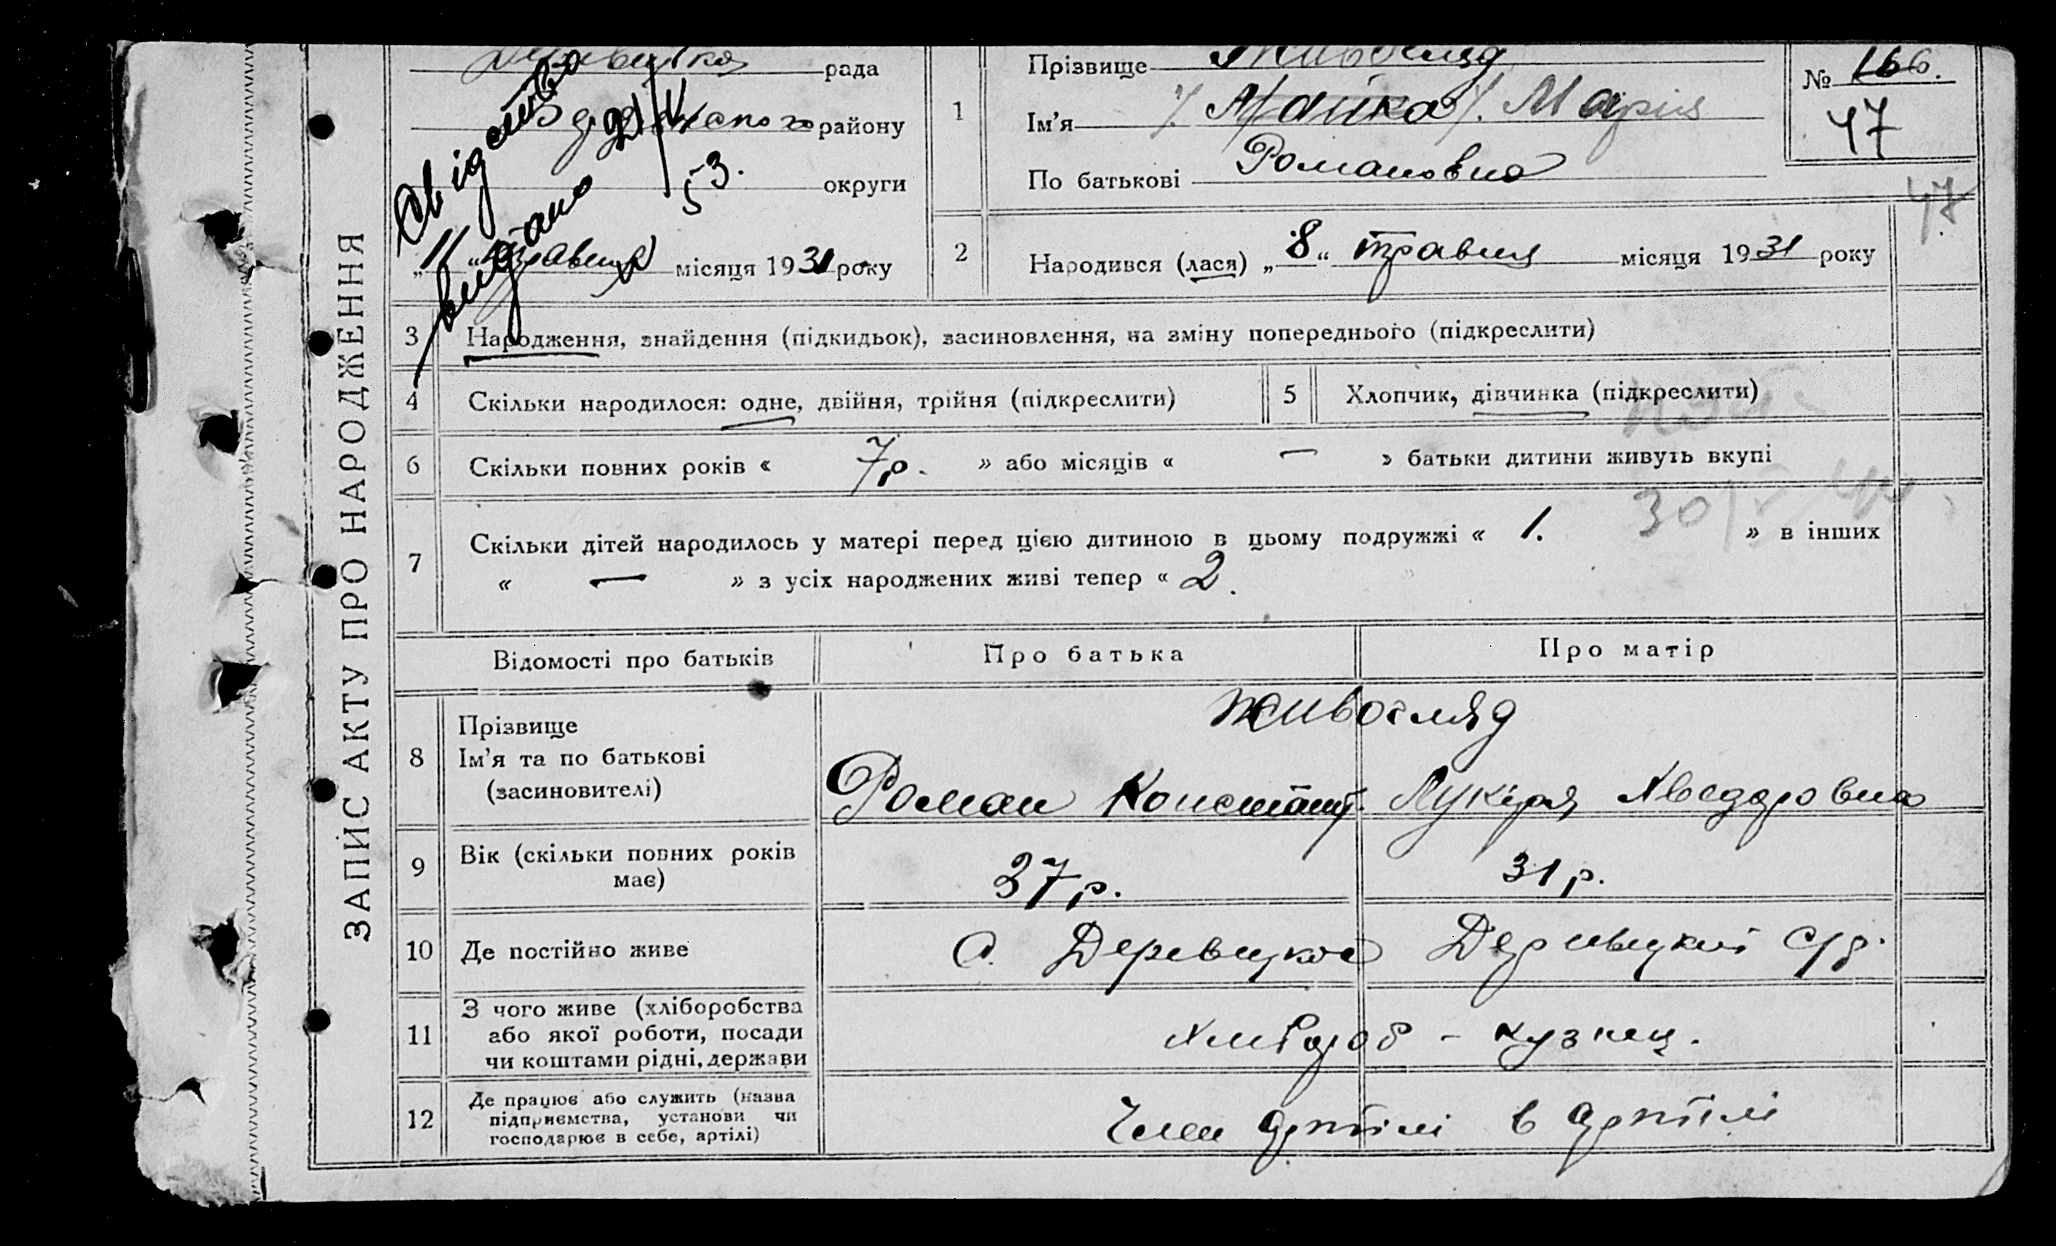 ЗАПИС АКТУ ПРО НАРОДЖЕННЯ
рада
району
округи
Свідоцтво видано
53.
„11“ травня місяця 1931 року
1
Прізвище Живогляд
Ім'я Марія
По батькові Романовна
№ 166.
47
47
2
Народився (лася) „8“ травня місяця 1931 року
3 Народження, знайдення (підкидьок), засиновлення, на зміну попереднього (підкреслити)
4 Скільки народилося: одне, двійня, трійня (підкреслити)
5 Хлопчик, дівчинка (підкреслити)
6 Скільки повних років « 7р. » або місяців « — » батьки дитини живуть вкупі
7 Скільки дітей народилось у матері перед цією дитиною в цьому подружжі « 1. » в інших
« — » з усіх народжених живі тепер « 2.
Відомості про батьків Про батька Про матір
8 Прізвище
Ім'я та по батькові
(засиновителі)
Живогляд
Роман Констант. Лукіря Хведоровна
9 Вік (скільки повних років
має)
37р. 31р.
10 Де постійно живе
с. Деревецкое
11 З чого живе (хліборобства
або якої роботи, посади
чи коштами рідні, держави
Хлібороб – кузнец.
12 Де працює або служить (назва
підприємства, установи чи
господарює в себе, артілі)
Член артілі в артілі